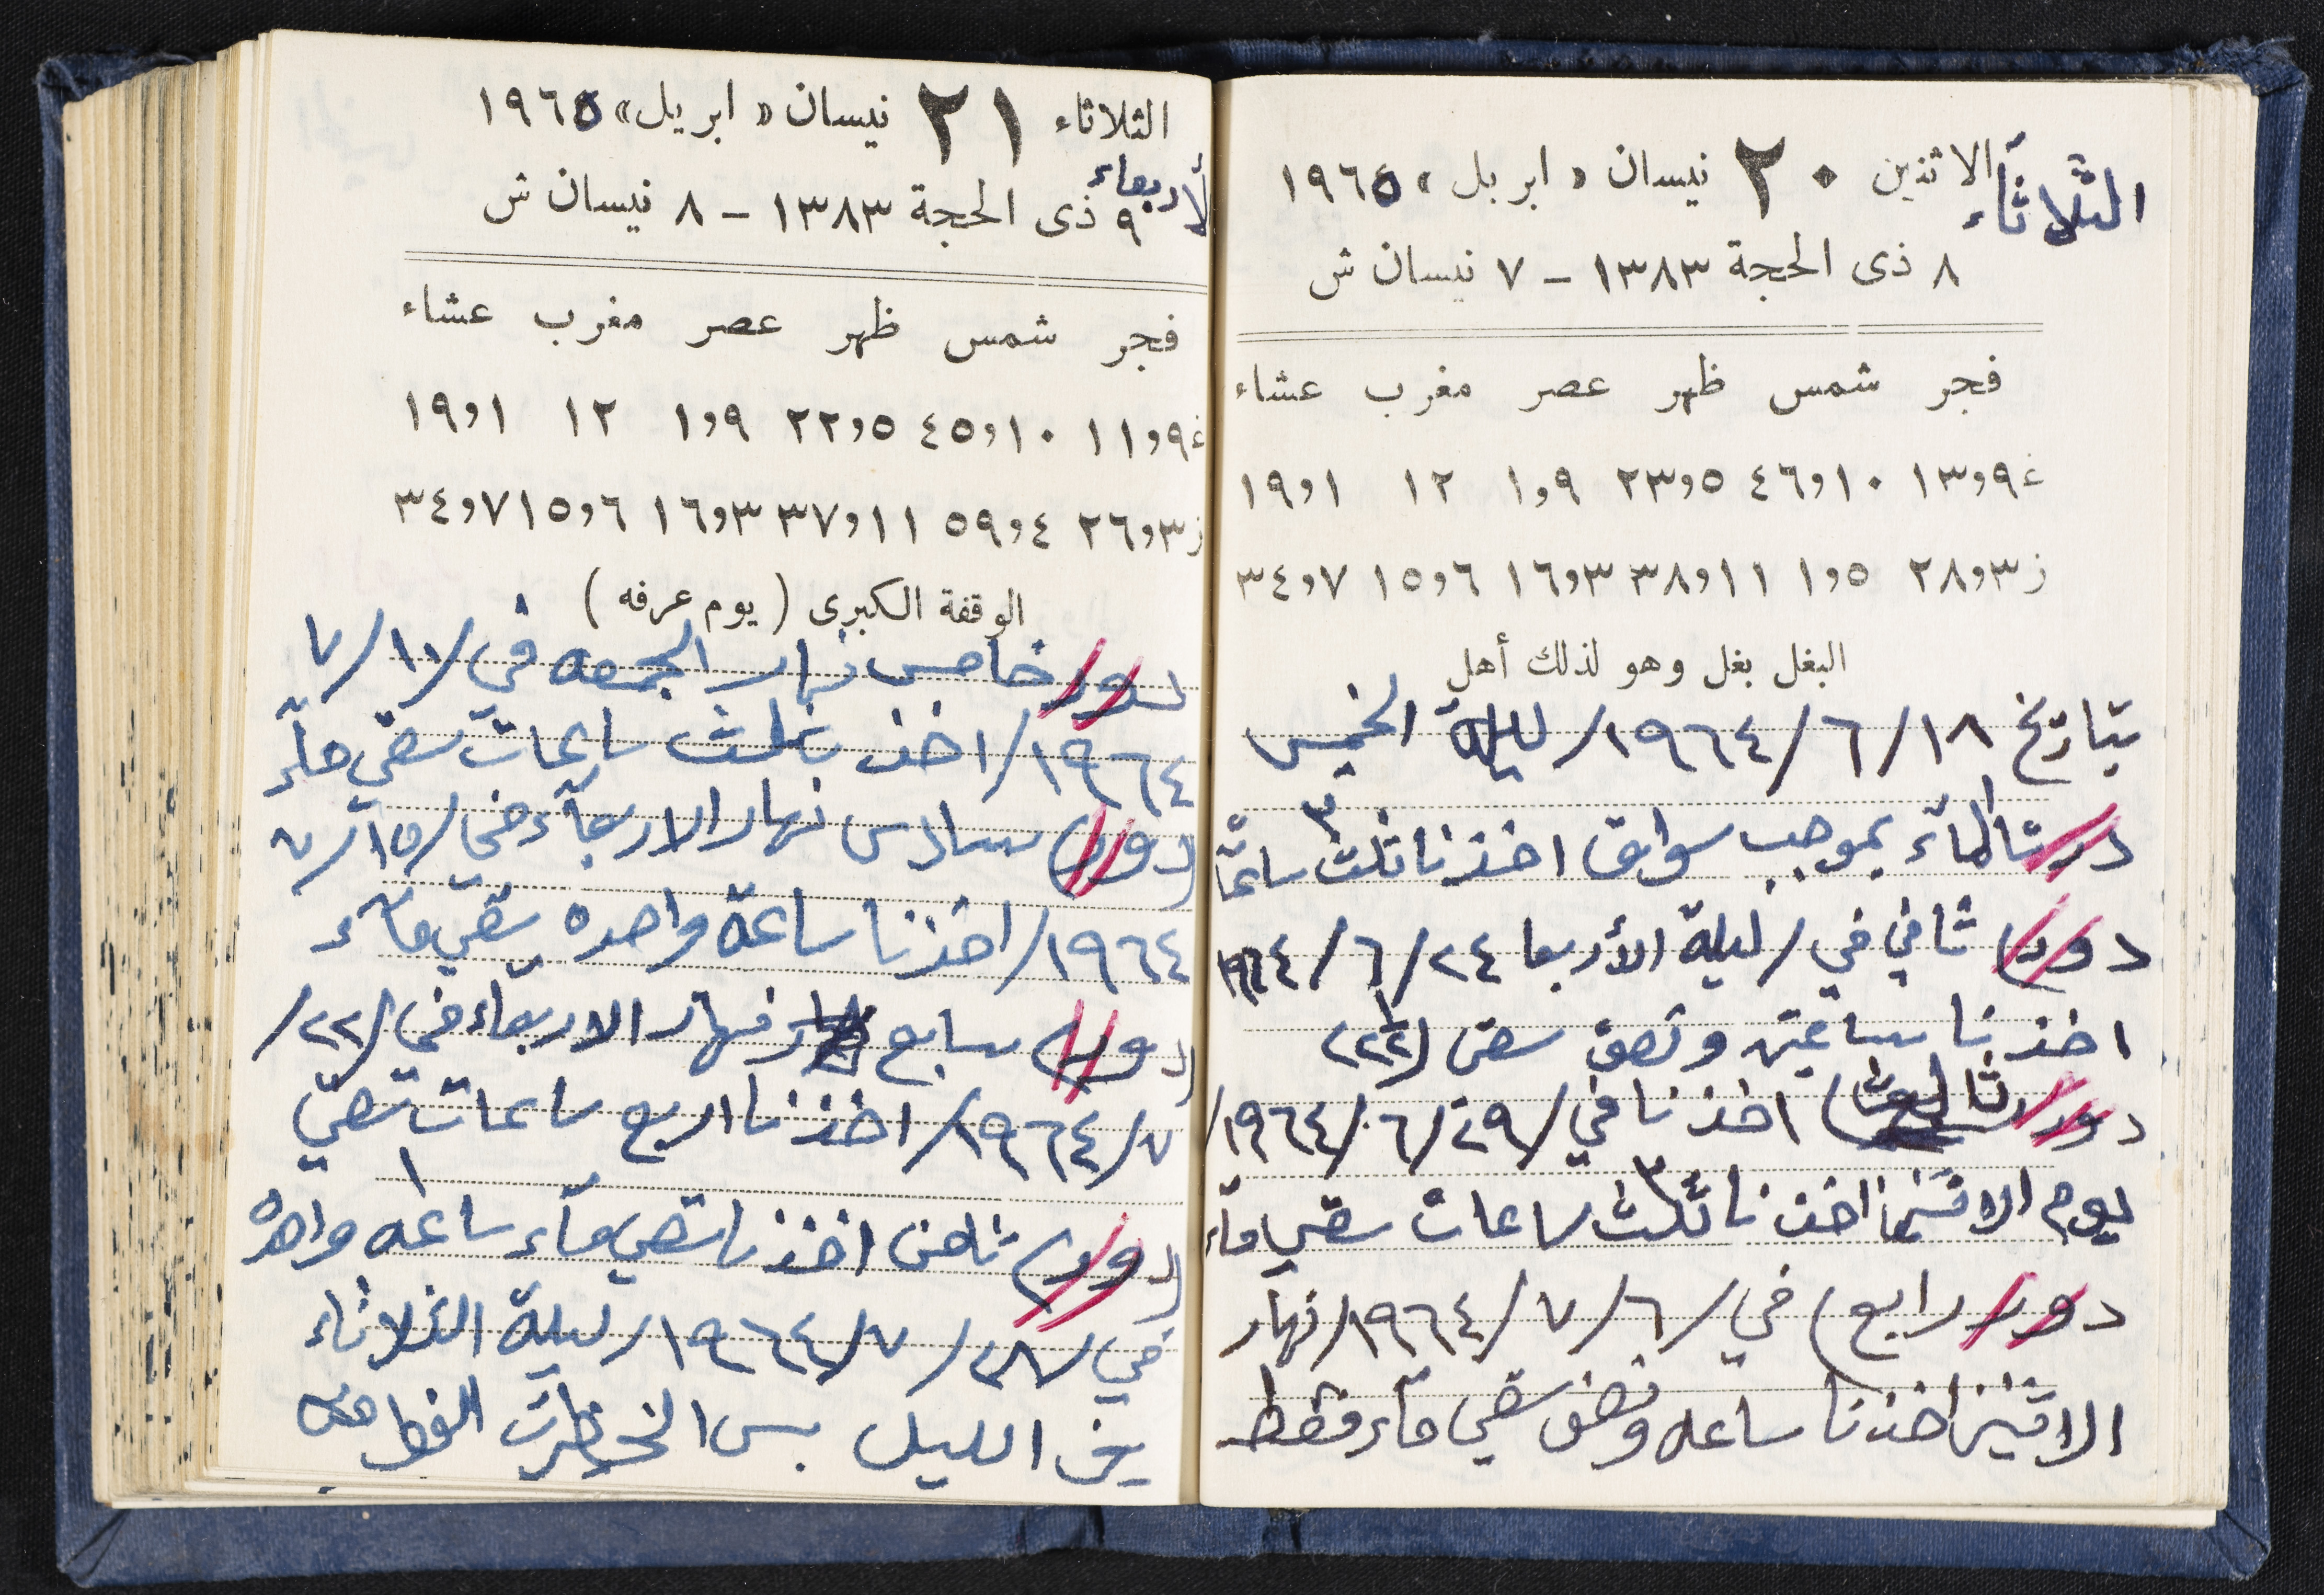 الاثنين ٢٠ نيسان « ابريل » ١٩٦٥
الثلاثاء
٨ ذى الحجة ١٣٨٣ – ٧ نيسان ش
فجر شمس ظهر عصر مغرب عشاء
غ ٩و١٣ ١٠و٤٦ ٥و٢٣ ٩و١ ١٢ ١و١٩
ز ٣و٢٨ ٥و١ ١١و٣٨ ٣و١٦ ٦و١٥ ٧و٣٤
البغل بغل وهو لذلك أهل
بتاريخ ١٨/٦/١٩٦٤/ ليلة الخميس
الماء بموجب سوابق اخذنا ثلث ٣
دور) ثاني في/ ليلة الأربعا ٢٤/٦/١٩٦٤
اخذنا ساعتين ونصف سقي
دور ثالث) اخذنا في/٢٩/٦/١٩٦٤/
يوم اخذنا ثلث ٣ ساعات سقي مآء
دور رابع) في/٦/٧/١٩٦٤/ نهار
الاثنين اخذنا ساعه ونصف سقي مآء فقط
الثلاثاء ٢١ نيسان « ابريل » ١٩٦٥
لأربعاء
٩ ذى الحجة ١٣٨٣ – ٨ نيسان ش
فجر شمس ظهر عصر مغرب عشاء
غ ٩و١١ ١٠و٤٥ ٥و٢٢ ٩و١ ١٢ ١و١٩
ز ٣و٢٦ ٤و٥٩ ١١و٣٧ ٣و١٦ ٦و١٥ ٧و٣٤
الوقفة الكبرى ( يوم عرفه )
دور/ خامس نهار الجمعه في/١٠/٧/
١٩٦٤/ اخذنا ثلث ساعات سقي مآء
(دور) سادس نهار الاربعآء في/١٥/٧
١٩٦٤/ اخذنا ساعة واحده سقي مآء
(دور) سابع نهار الاربعاء في/٢٢/
٧/١٩٦٤/ اخذنا اربع ساعات سقي
(دور) ثامن اخذنا سقي مآء ساعه ١ واحده
في/٢٨/٧/١٩٦٤/ ليلة الثلاثاء
الليل بس